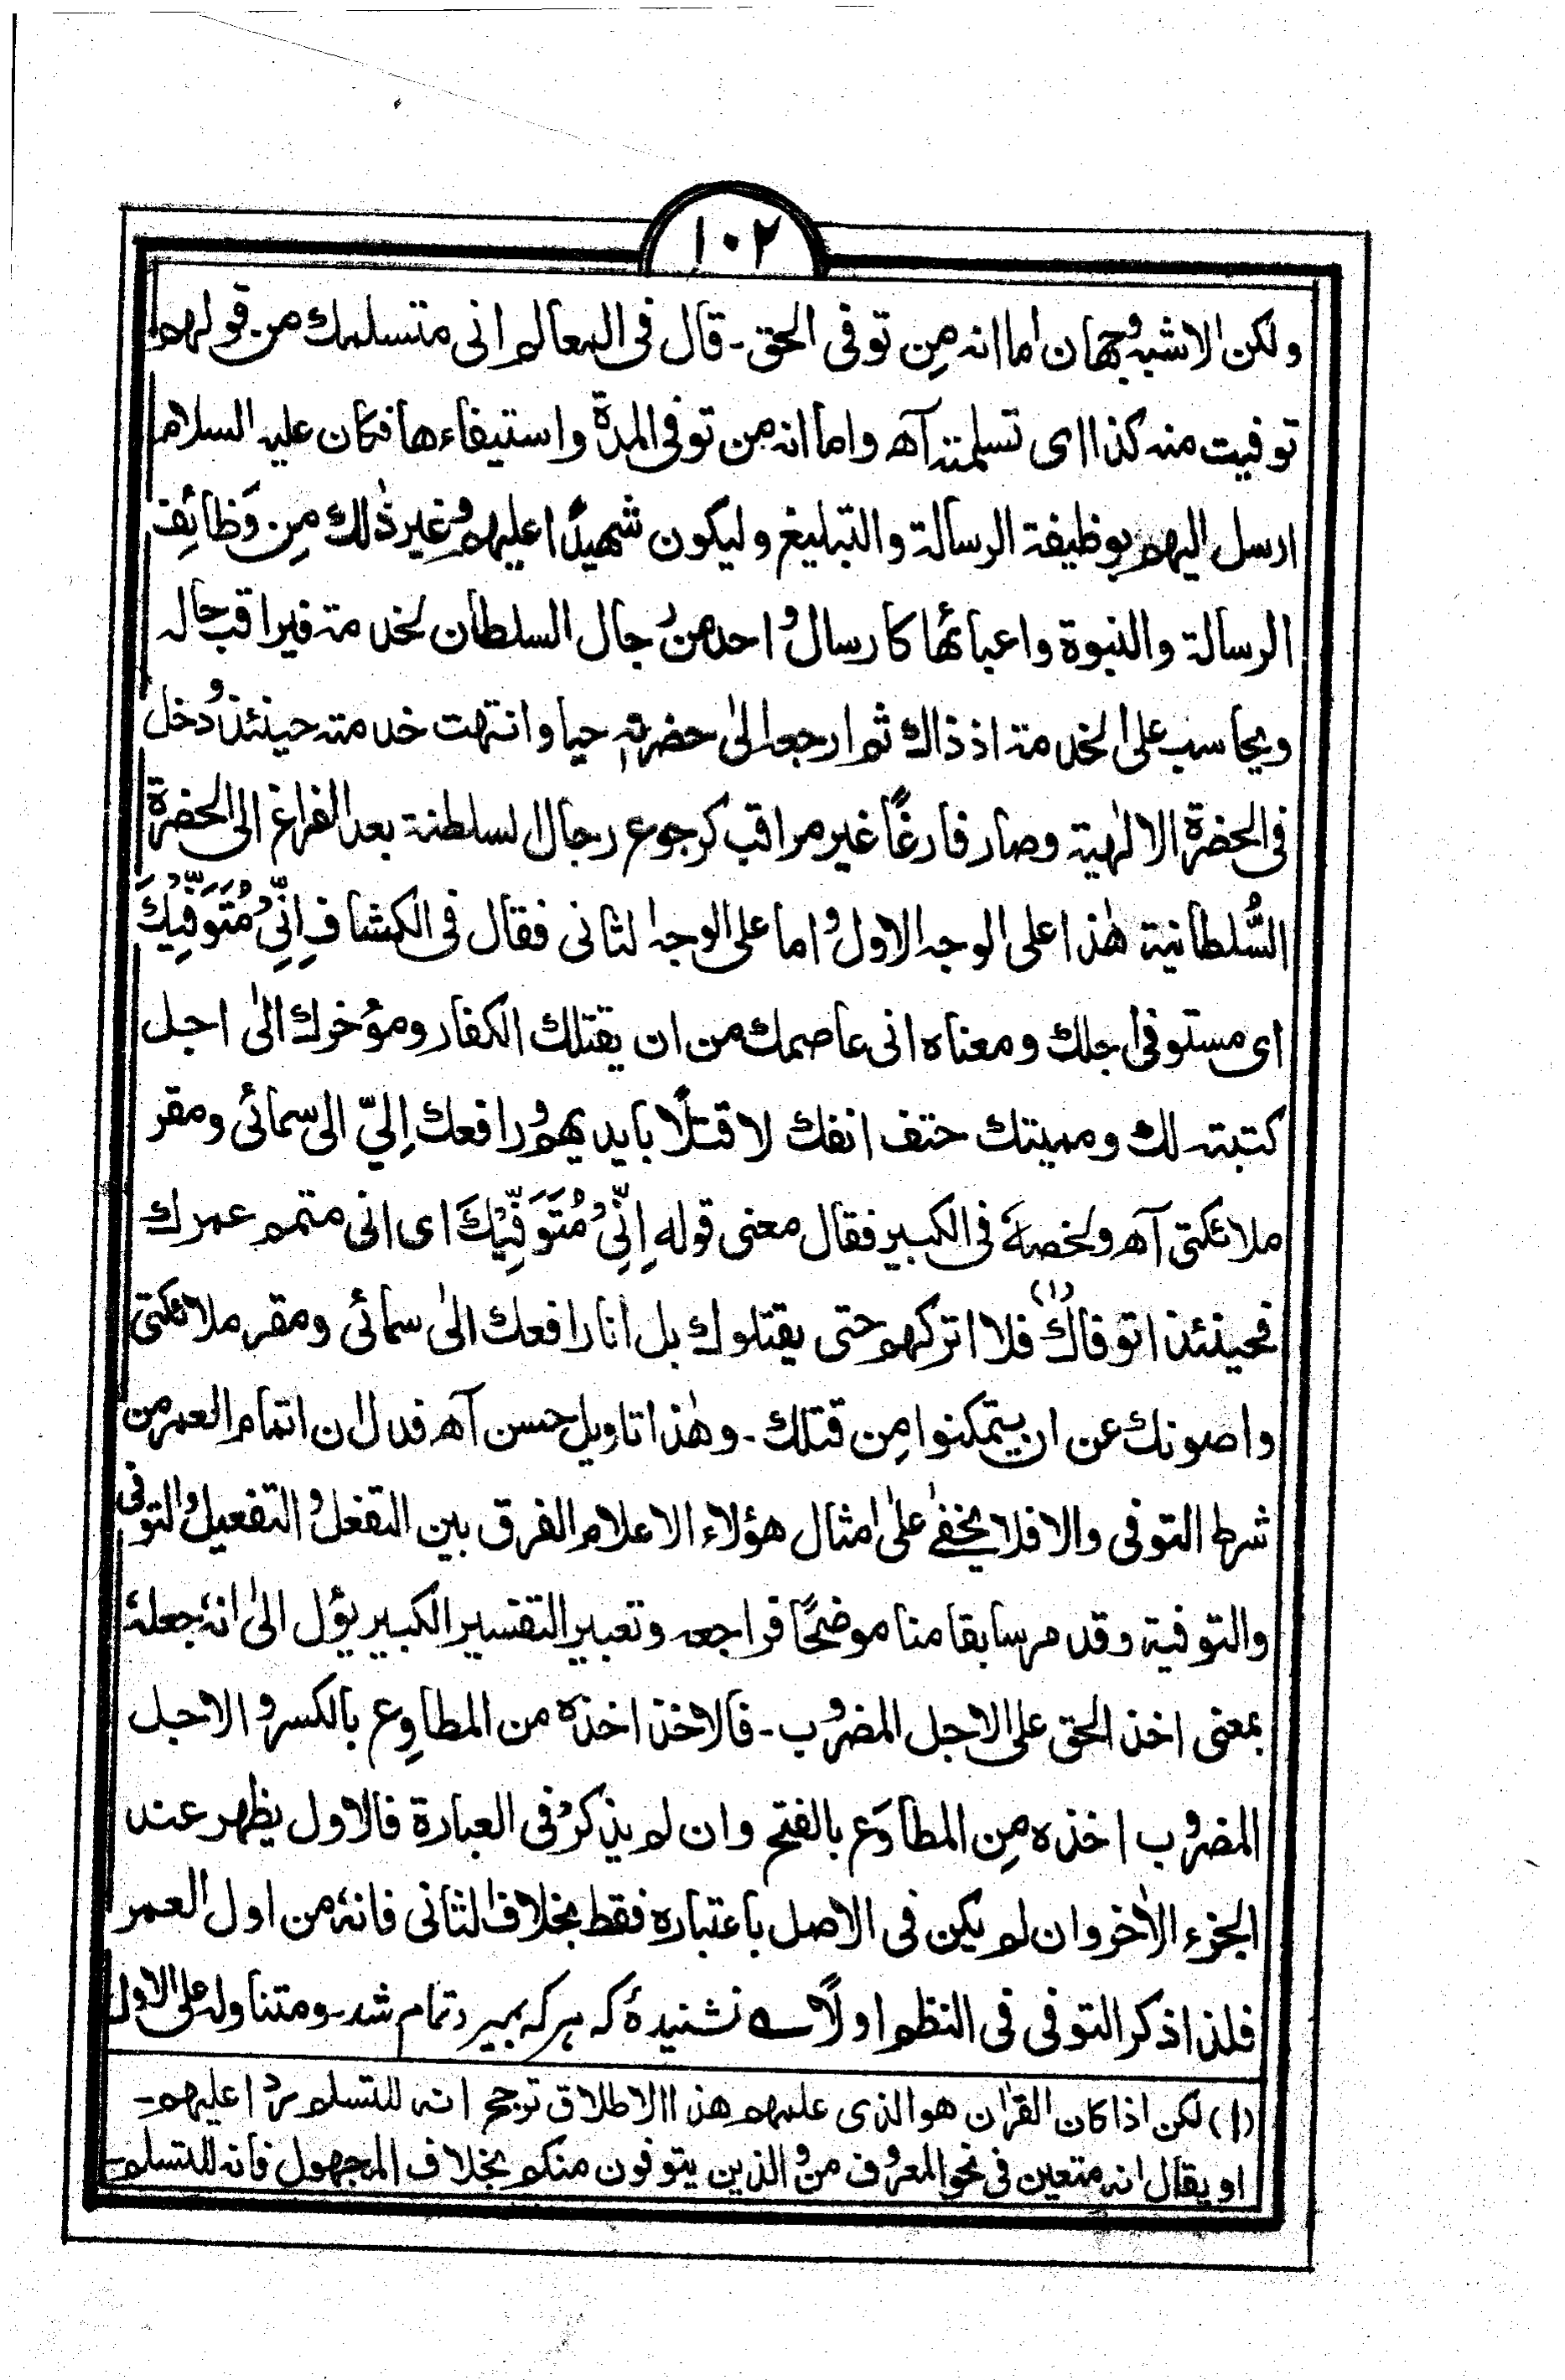 ١٠٢
ولكن الاشبه وجهان اما انه مِن توفى الحق۔ قال فى المعالم انى متسلمك من قولهم
توفيت منه كذا اى تسلمته آه واما انه مِن توفى المدة واستيفاءها فكان عليه السلام
ارسل اليهم بوظيفة الرسالة والتبليغ وليكون شهيدًا عليهم وغير ذٰلك مِن وَظائِف
الرسالة والنبوة واعبائها كارسال واحد من رجال السلطان لخدمة فيراقب حاله
ويحاسب على الخدمة اذ ذاك ثم ارجعا الىٰ حضرته حيا وانتهت خدمته حينئذ ودخل
فى الحضرة الالٰهية وصار فارغًا غير مراقب كرجوع رجال السلطنة بعد الفراغ الى الحضرة
السُّلطانية هٰذا على الوجه الاول واما على الوجه الثانى فقال فى الكشاف اِنِّىْ مُتَوَفِّيْكَ
اى مستوفى اجلك ومعناه انى عاصمك من ان يقتلك الكفار ومؤخرك الىٰ اجل
كتبته لك ومميتك حتف انفك لا قتلًا بايديهم ورافعك اِليّ الى سمائى ومقر
ملائكتى آه ولخصهٗ فى الكبير فقال معنى قوله اِنِّىْ مُتَوَفِّيْكَ اى انى متمم عمرك
فحينئذ اتوفاك (١) فلا اتركهم حتى يقتلوك بل انا رافعك الىٰ سمائى ومقر ملائكتى
واصونك عن ان يتمكنوا مِن قتلك۔ وهٰذا تاويل حسن آه فدل ان اتمام العمر من
شرط التوفى والا فلا يخفےٰ علىٰ امثال هؤلاء الاعلام الفرق بين التفعل والتفعيل والتوفى
والتوفية وقد مر سابقا منا موضحًا فراجعه وتعبير التفسير الكبير يؤل الىٰ انهٗ جعلهٗ
بمعنى اخذ الحق على الاجل المضروب۔ فالاخذ اخذه من المطاوِع بالكسر والاجل
المضروب اخذه مِن المطاوَع بالفتح وان لم يذكر فى العبارة فالاول يظهر عند
الجزء الاٰخر وان لم يكن فى الاصل باعتباره فقط بخلاف الثانى فانهٗ من اول العمر
فلذا ذكر التوفى فى النظم اولًا ؎ نشنيدهٔ كہ ہر كہ بميرد تمام شد۔ ومتناوله على الاول
(١) لكن اذا كان القراٰن هو الذى علمهم هذا الاطلاق ترجح انه للتسلم ردا عليهم۔
او يقال انه متعين فى نحو المعروف من والذين يتوفون منكم بخلاف المجهول فانه للتسلم۔